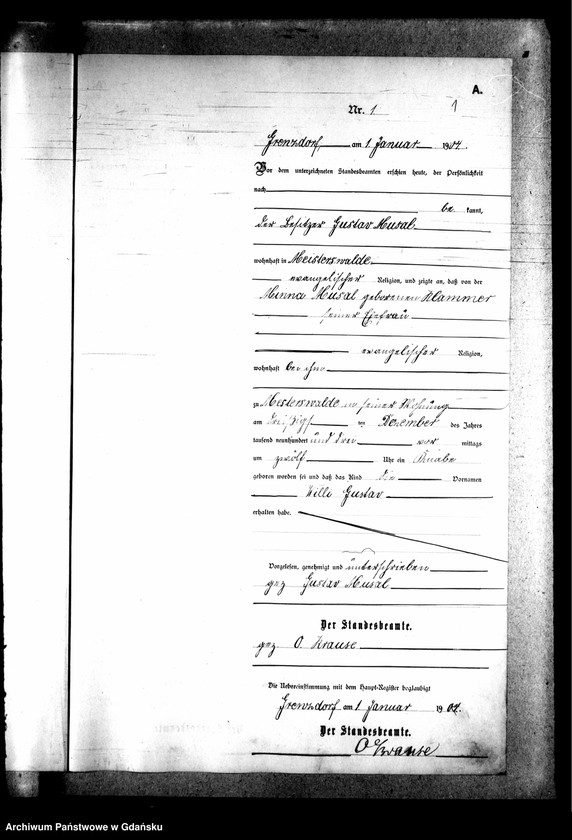 A.
Nr. 1
1
Grenzdorf, am 1 Januar 1904.
Vor dem unterzeichneten Standesbeamten erschien heute, der Persönlichkeit
nach
be kannt,
der Besitzer Gustav Musal
wohnhaft in Meisterswalde
evangelischer Religion, und zeigte an, daß von der
Minna Musal geborenen Klammer
seiner Ehefrau
evangelischer Religion,
wohnhaft bei ihm
zu Meisterswalde in seiner Wohnung
am dreißigsten Dezember des Jahres
tausend neunhundert und drei vor mittags
um zwölf Uhr ein Knabe
geboren worden sei und daß das Kind die Vornamen
Willi Gustav
erhalten habe.
Vorgelesen, genehmigt und unterschrieben
gez Gustav Musal
Der Standesbeamte.
gez. O. Krause
Die Uebereinstimmung mit dem Haupt-Register beglaubigt
Grenzdorf am 1 Januar 1904.
Der Standesbeamte.
O Krause
Archiwum Państwowe w Gdańsku